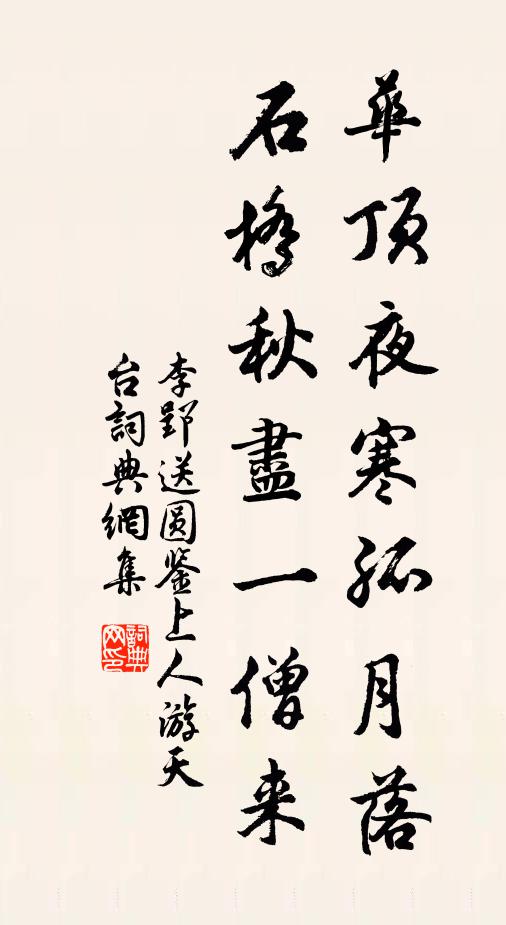 華頂夜寒孤月落
石橋秋盡一僧来
李郢送圆鉴上人游天
台詞典網集
詞典
网印